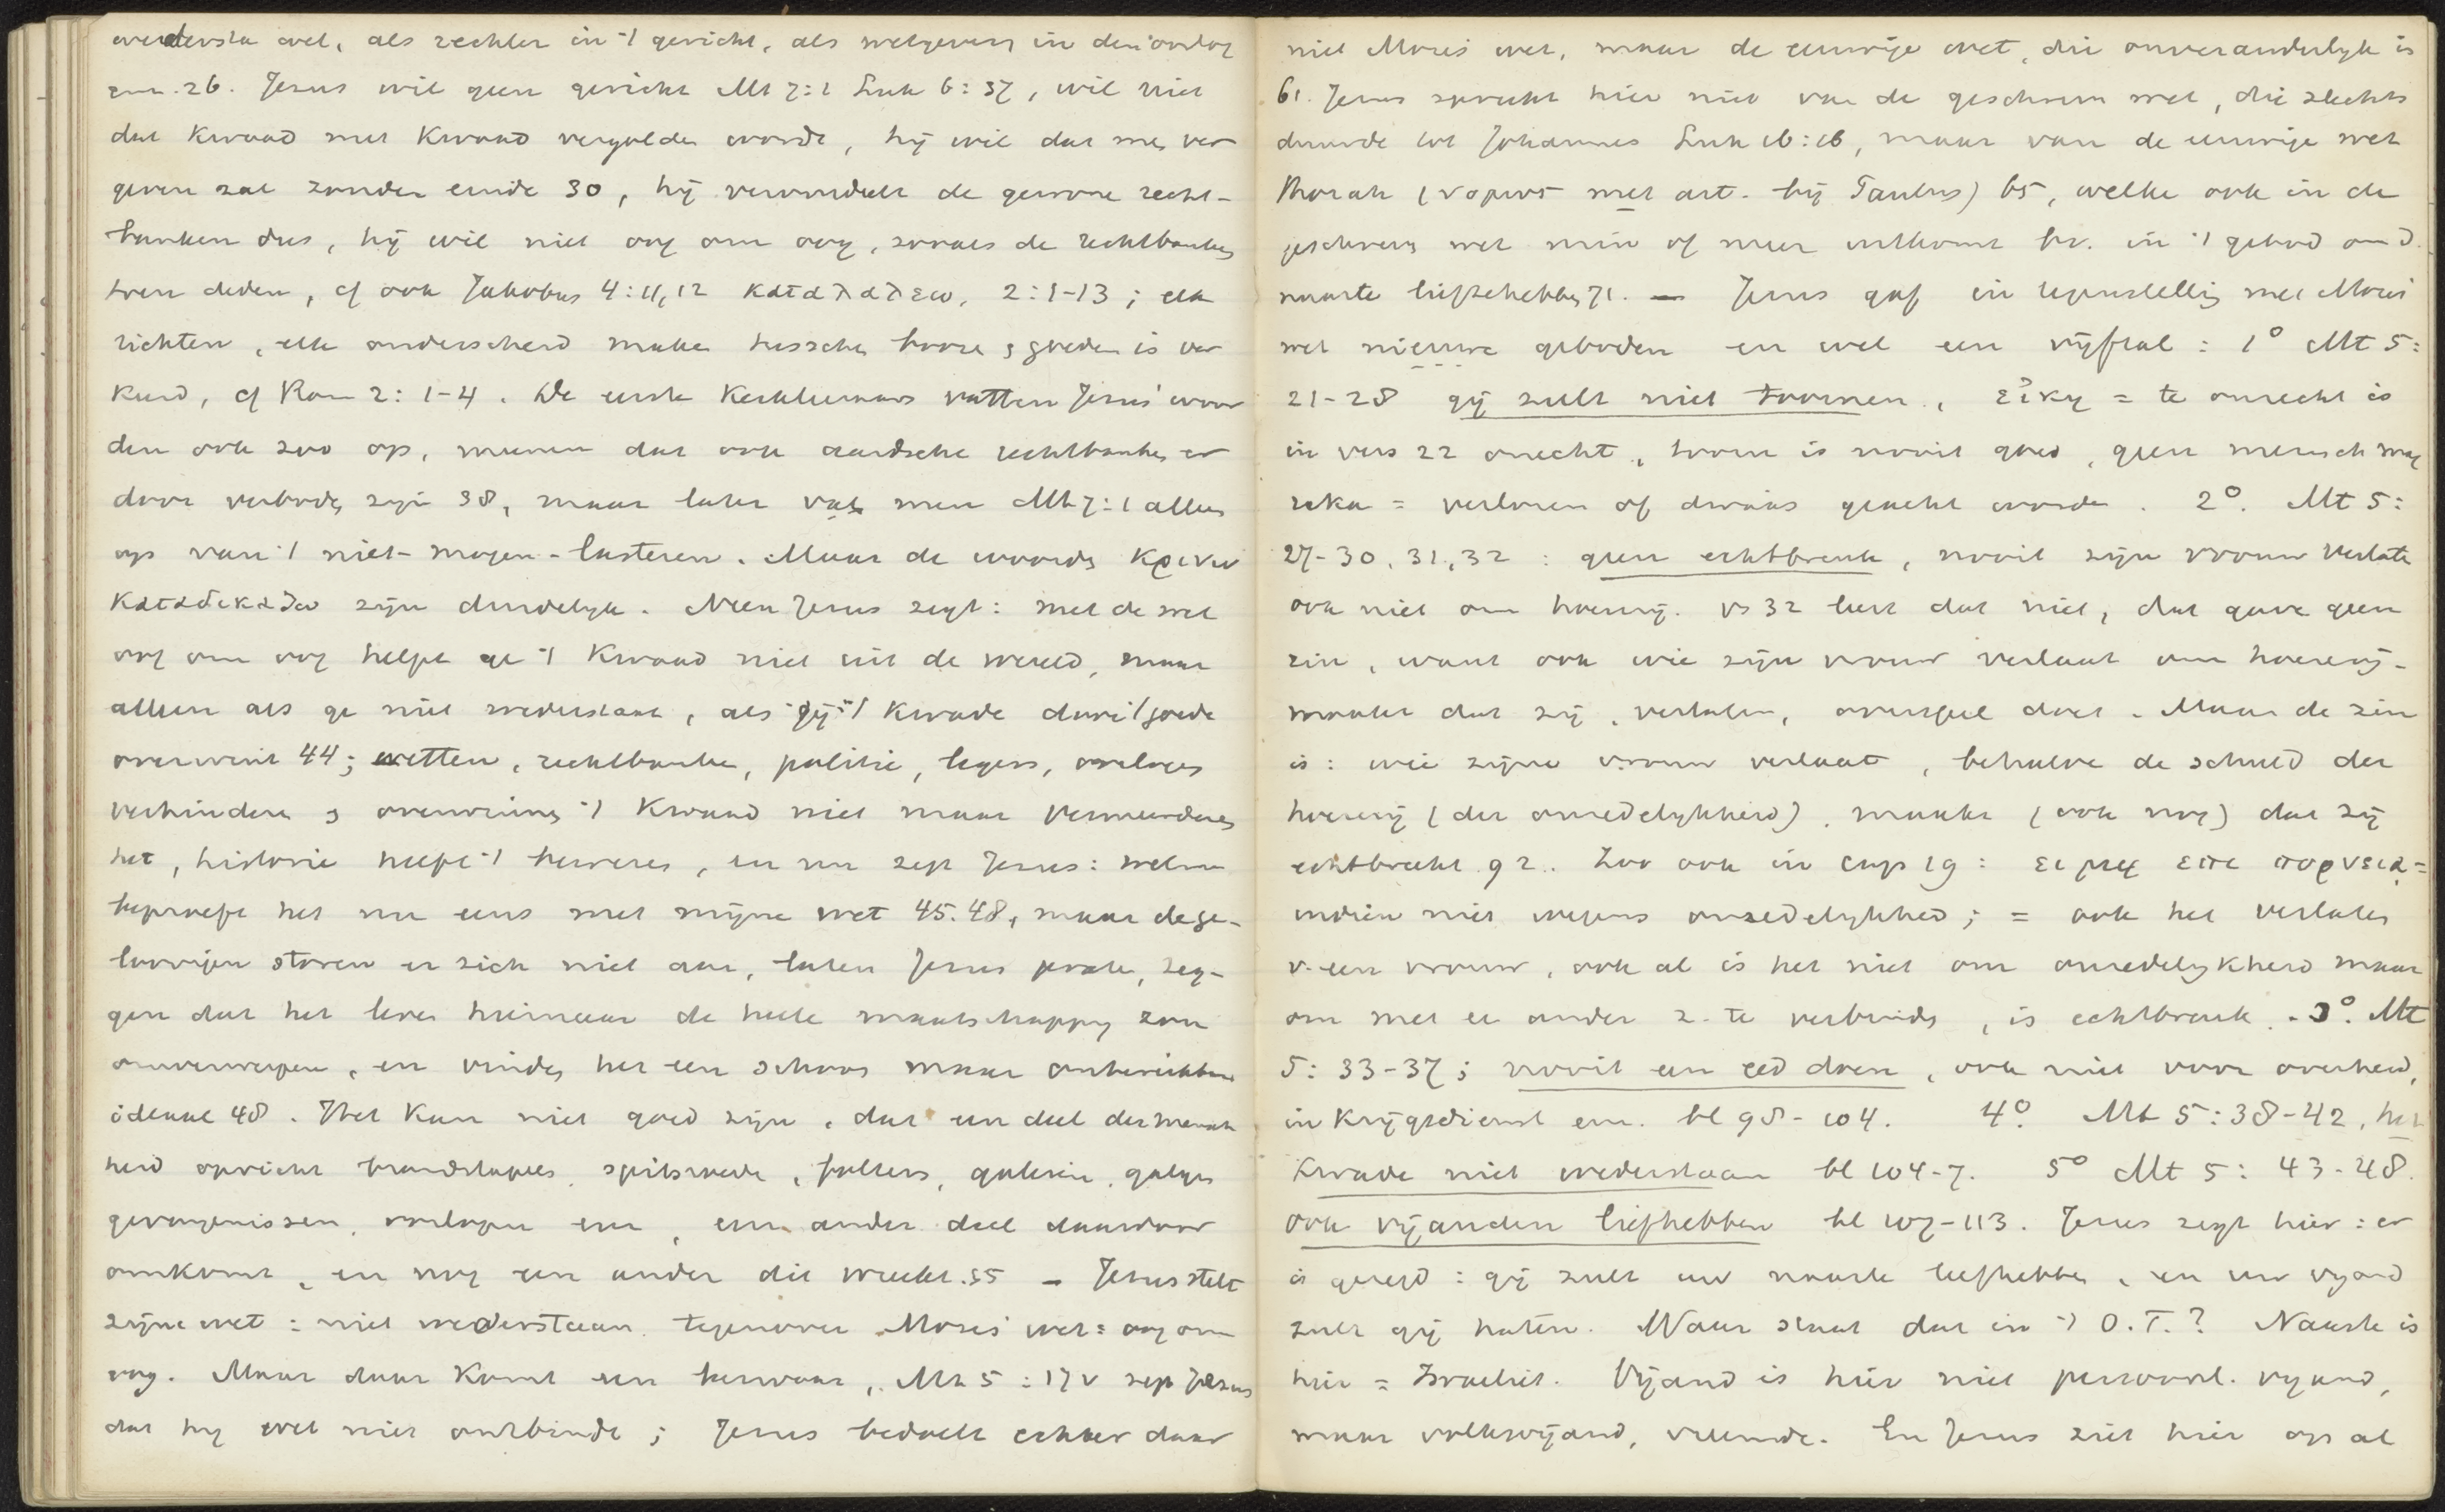 wedersta wel, als rechter in 't gericht, als wetgevers in den oorlog
enz. 26. Jezus wil geen gericht Mt 7:1 Luk 6:37, wil niet
dat kwaad met kwaad vergolden worde, hij wil dat men ver
geven zal zonder einde 30, hij veroordeelt de gewone recht-
banken dus, hij wil niet oog om oog, zooals de rechtbanken
toen deden, cf ook Jakobus 4:11,12 καταλαλεω, 2:1-13; elk
richten, elk onderscheid maken tusschen booze en goeden is ver
keerd, cf Rom 2:1-4. De eerste Kerkleeraars vatten Jezus' woor
den ook zoo op, meenen dat ook aardsche rechtbanken er
door verboden zijn 38, maar later vat men Mt 7:1 alleen
op van 't niet-mogen-lasteren. Maar de woorden κρινω
καταδικαζω zijn duidelijk. Neen Jezus zegt: met de wet
oog om oog helpt ge 't kwaad niet uit de wereld, maar
alleen als ge niet wederstaat, als gij 't kwade door 't goede
overwint 44; wetten, rechtbanken, politie, legers, oorlogen
verhinderen en overwinnen 't kwaad niet maar vermeerderen
het, historie heeft 't bewezen, en nu zegt Jezus: welnu
beproeft het nu eens met mijne wet 45.48, maar de ge-
loovigen storen er zich niet aan, laten Jezus praten, zeg-
gen dat het leven hiernaar de heele maatschappij zou
omverwerpen, en vinden het een schoon maar onbereikbaar
ideaal 48. Het kan niet goed zijn, dat een deel der mensch
heid opricht brandstapels, spitsroede, folters, galeien, galgen
gevangenissen, oorlogen enz, een ander deel daardoor
omkomt, en nog een ander dit wreekt. 55 – Jezus stelt
zijne wet: niet wederstaan tegenover Mozes' wet: oog om
oog. Maar daar komt een bezwaar, Mt 5:17v zegt Jezus
dat hij wet niet ontbindt; Jezus bedoelt echter daar
niet Mozes' wet, maar de eeuwige wet, die onveranderlijk is
61. Jezus spreekt hier niet van de geschreven wet, die slechts
duurde tot Johannes Luk 16:16, maar van de eeuwige wet
Thorah (νομος met art. bij Paulus) 65, welke ook in de
geschreven wet min of meer uitkomt bv. in 't gebod om d.
naaste lief te hebben 71. – Jezus gaf in tegenstelling met Mozes'
wet nieuwe geboden en wel een vijftal: 1° Mt 5:
21-28 gij zult niet toornen, εἰκῃ = te onrecht is
in vers 22 onecht, toorn is nooit goed, geen mensch mag
raka = verloren of dwaas geacht worden. 2°. Mt 5:
27-30, 31, 32: geen echtbreuk, nooit zijn vrouw verlaten
ook niet om hoererij. vs 32 leert dat niet, dat gave geen
zin, want ook wie zijn vrouw verlaat om hoererij
maakt dat zij, verlaten, overspel doet. Maar de zin
is: wie zijne vrouw verlaat, behalve de schuld der
hoererij (der onzedelijkheid), maakt (ook nog) dat zij
echtbreekt 92. Zoo ook in cap 19: ει μη επι πορνεια =
indien niet wegens onzedelijkheid; = ook het verlaten
v. een vrouw, ook al is het niet om onzedelijkheid maar
om met een ander z. te verbinden, is echtbreuk. - 3°. Mt
5:33-37; nooit een eed doen, ook niet voor overheid,
in krijgsdienst enz. bl 98-104. 4° Mt 5:38-42, het
kwade niet wederstaan bl 104-7. 5° Mt 5:43-48.
ook vijanden liefhebben bl 107-113. Jezus zegt hier: er
is gezegd: gij zult uw naaste liefhebben, en uw vijand
zult gij haten. Waar staat dat in 't O.T.? Naaste is
hier = Israeliet. Vijand is hier niet persoonl. vijand,
maar volksvijand, vreemde. En Jezus ziet hier op al